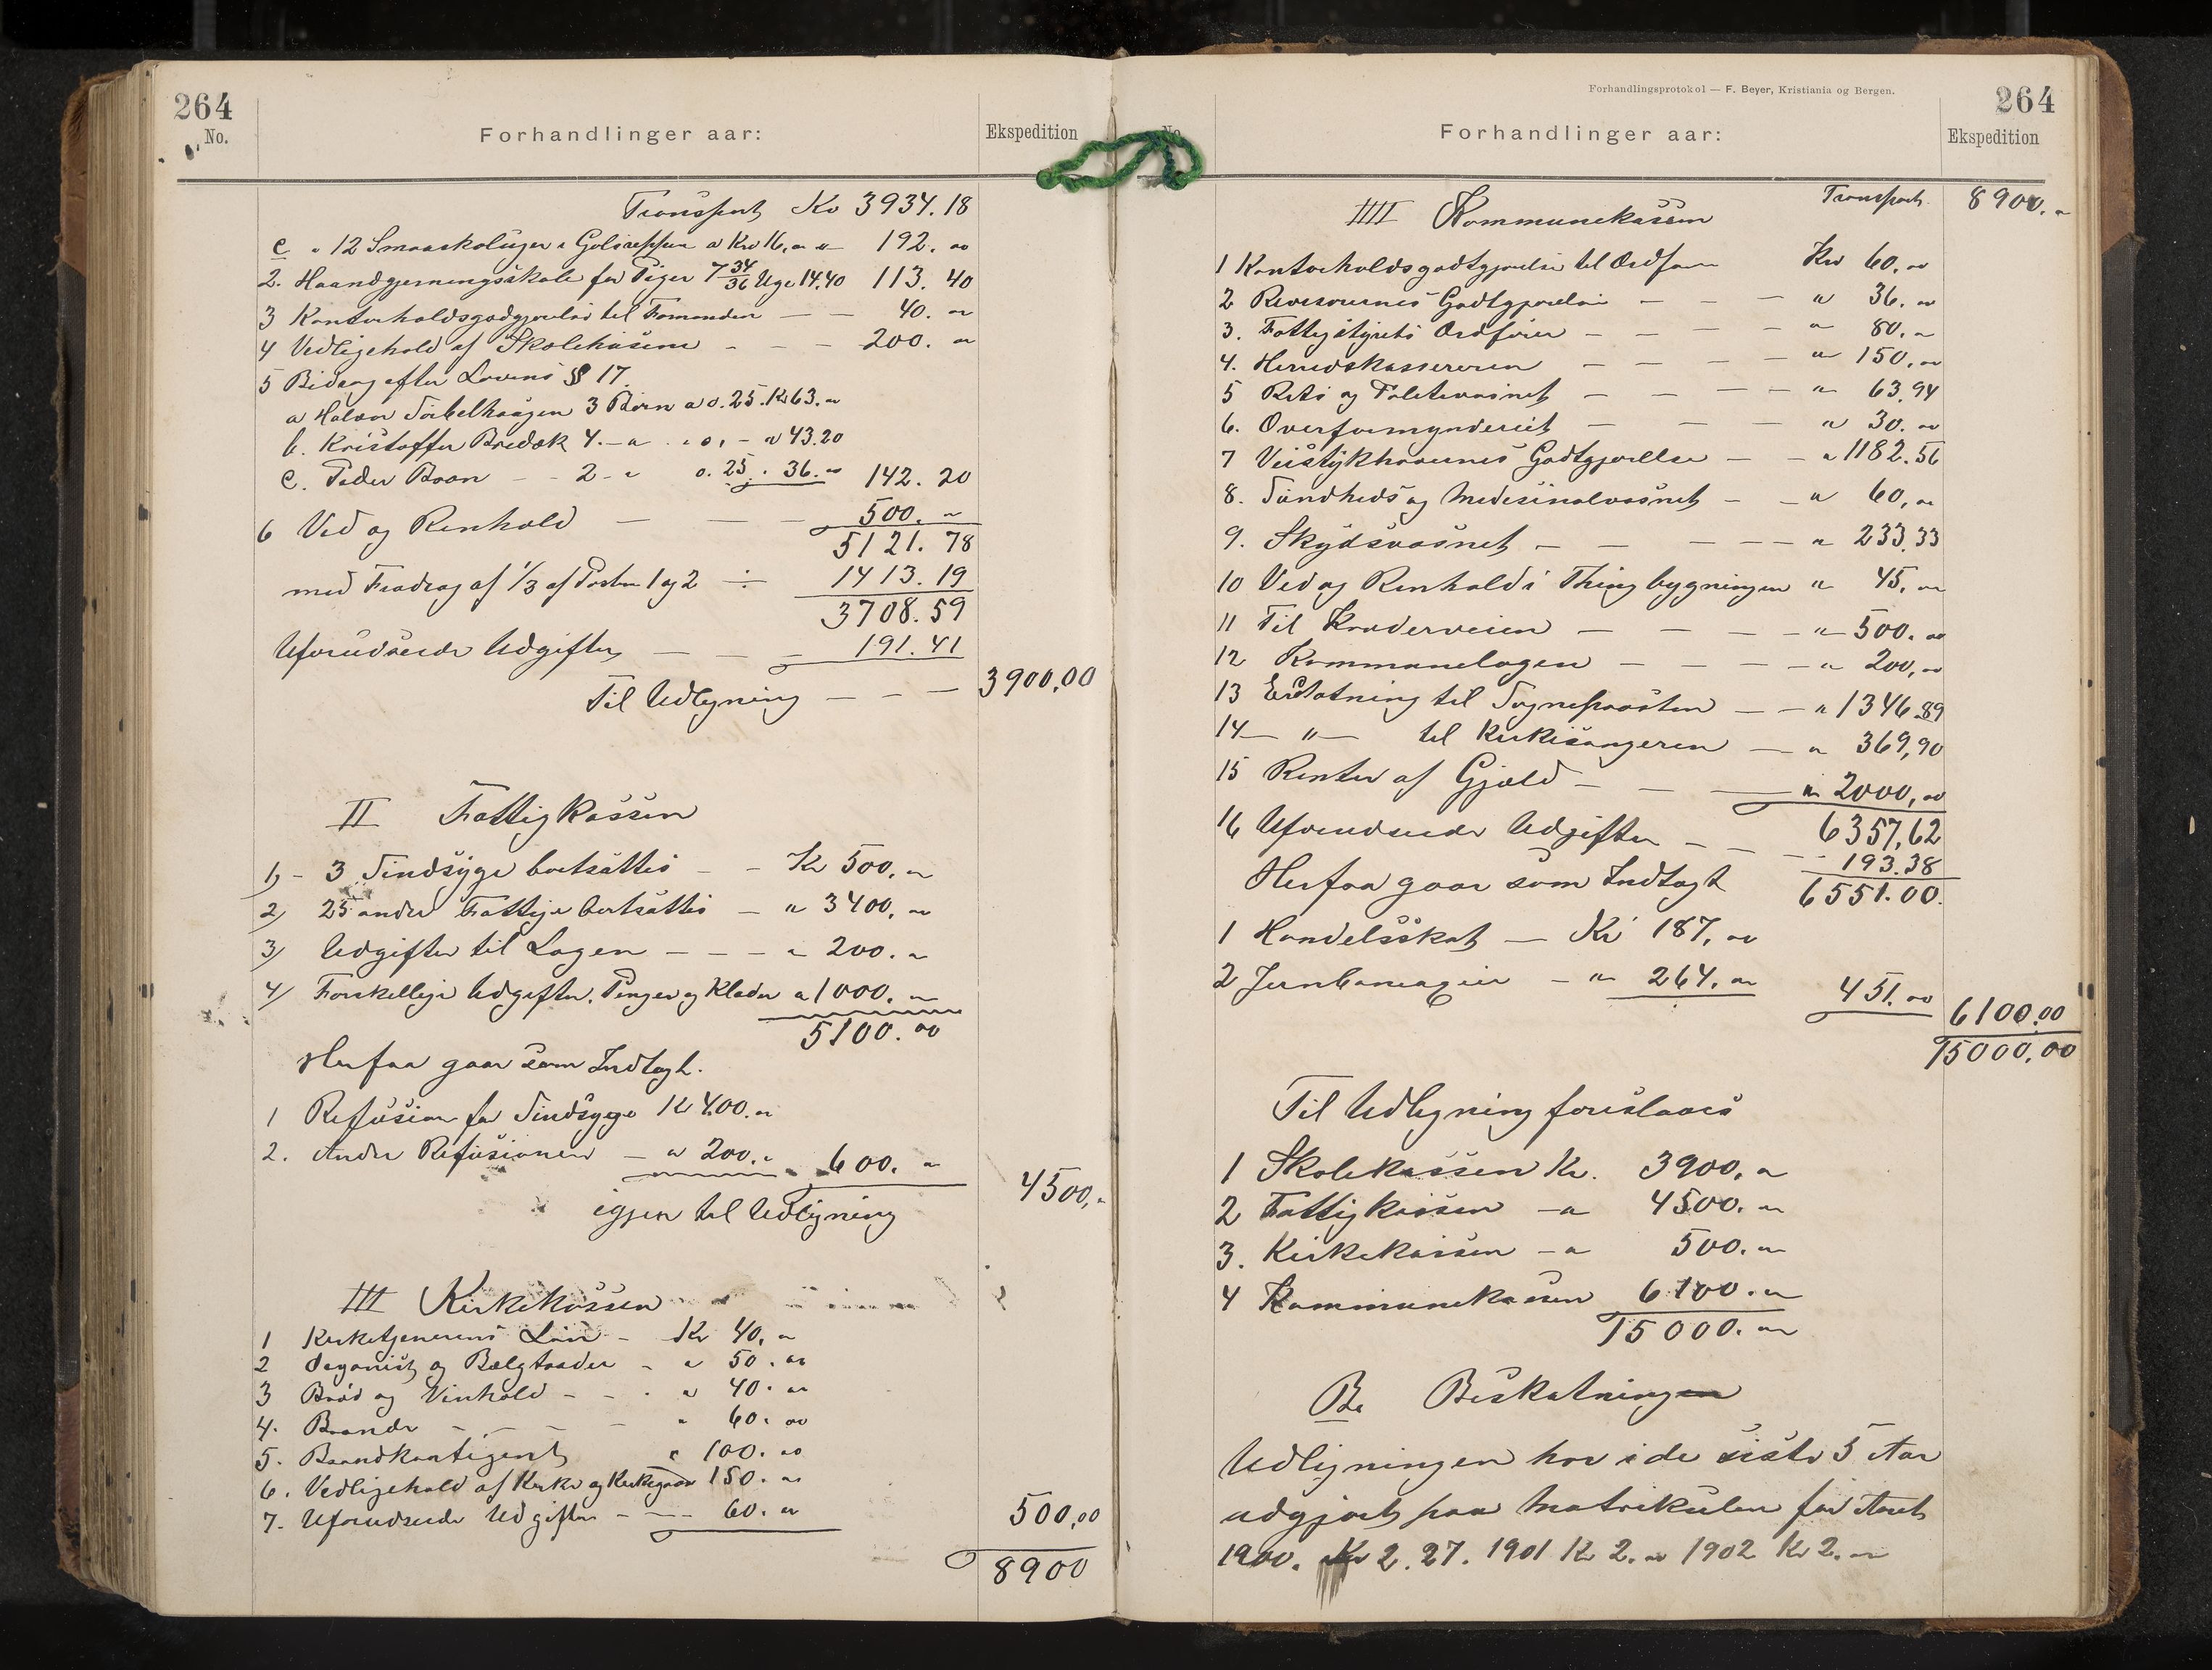 264
No.
Forhandlinger aar:
Ekspedition
Transport Kr 3934.18
c. " 12 Smaaskoluger i Golreppen a Kr 16,00 " 192.00
2. Haandgjerningsskole for Piger 7 34/36 Uge 14.40 113.40
3 Kontorholdsgodgjørelse til Formanden — — 40.00
4 Vedligehold af Skolehusene - - - 200.00
5 Bidrag efter Lovens § 17.
a Halvor 3 Børn a 0.25. Kr 63.00
b. Kristoffer Bredæk 4. — " " 0, - " 43.20
c. Peder Boon - - 2 - " 0.25. 36.00 142.20
6 Ved og Renhold — — — 500.00
5121.78
med Fradrag af 1/3 af Posten 1 og 2 ÷ 1413.19
3708.59
Uforudseede Udgifter — — — 191.41
Til Udligning — — — 3900,00
II Fattigkassen
1) - 3 Sindsyge bortsattes - - Kr 500,00
2) 25 andre Fattige bortsattes — " 3400,00
3) Udgifter til Lægen — — — " 200.00
4) Forskellige Udgifter, Penger og Klæder " 1000.00
5100.00
Herfra gaar som Indtægt.
1 Refusion for Sindsyge Kr 400.00
2. Andre Refusioner — " 200.00 600.00
igjen til Udligning 4500,00
III Kirkekassen
1 Kirketjenerens Løn - Kr 40,00
2 Organist og Bælgtræder - " 50.00
3 Brød og Vinhold - - . " 40.00
4. Brænde - - - - " 60.00
5. Brandkontigent " 100.00
6. Vedligehold af Kirke og Kirkegaar 150.00
7. Uforudseede Udgifter - — - 60.00 500,00
8900
Forhandlingsprotokol — F. Beyer, Kristiania og Bergen.
264
No.
Forhandlinger aar:
Ekspedition
IIII Kommunekassen Transport 8900.00
1 Kontorholdsgodtgjørelse til Ordfører Kr 60.00
2 Revisorernes Godtgjørelse — — — " 36.00
3. Fattigstyrets Ordfører — — — — " 80.00
4. Herredskassereren — — — — " 150.00
5 Rets og Politivæsnet — — — — " 63.94
6. Overformynderiet — — — " 30.00
7 Veistykhavernes Godtgjørelse — — " 1182.56
8. Sundheds og Medesinalvæsnet — — " 60,00
9. Skydsvæsnet — — — — — " 233.33
10 Ved og Renhold i Thingbygningen " 45,00
11 Til Krøderveien — — — — " 500.00
12 Kommunelægen — — — — " 200,00
13 Erstatning til Sognepræsten — — " 1346.89
14 — " — til Kirkesangeren — " 369,90
15 Renter af Gjæld — — — " 2000,00
6357,62
16 Uforudseede Udgifter — — — 193.38
6551.00.
Herfra gaar som Indtægt
1 Handelsskat — Kr 187,00
2 — " 264,00 451.00 6100.00
15000,00
Til Udligning foreslaaes
1 Skolekassen Kr. 3900,00
2 Fattigkassen — " 4500.00
3. Kirkekassen — " 500.00
4 Kommunekassen 6100.00
15000.00
B. Beskatningen
Udligningen har i de siste 5 Aar
udgjort paa Matrikulen for Aaret
1900. Kr 2.27. 1901 Kr 2.00 1902 Kr 2.00